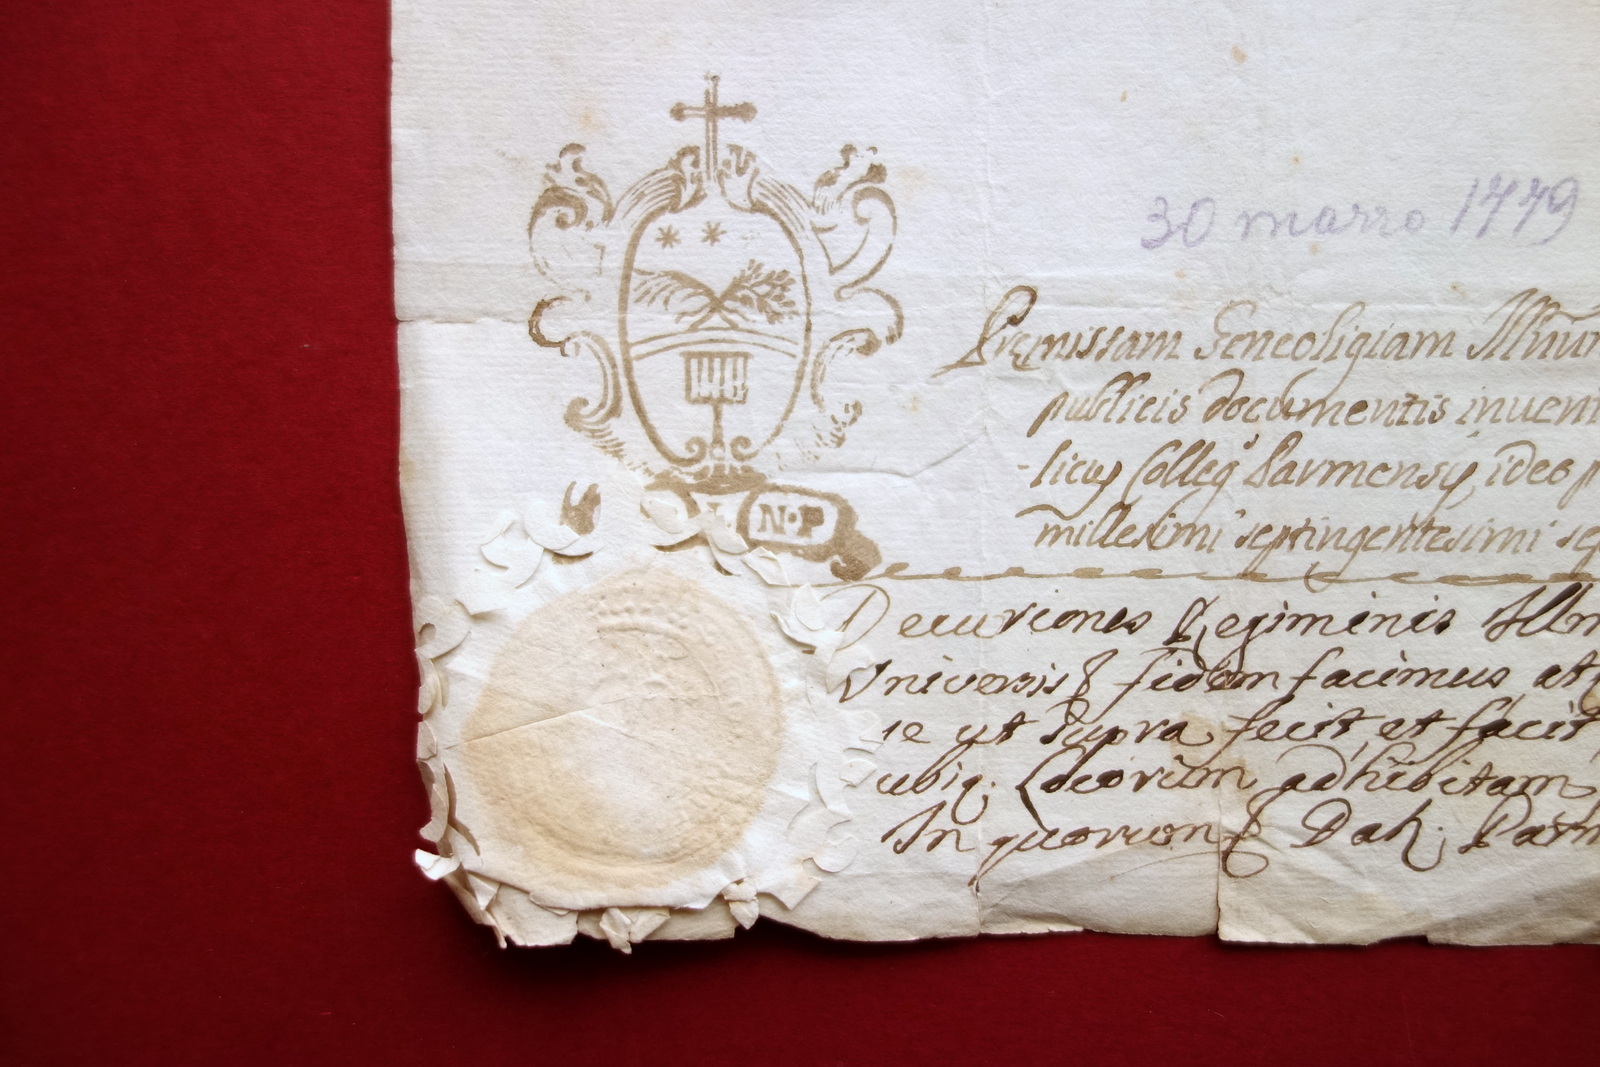 30 marzo 1779
Premissam Geneoligiam Illm̃
publicis documentis inveni
-licus Colleg.s Parmensis ideo p
millesimi septingentesimi sep
N·P
Decuriones Regiminis Illm
Universis fidem facimus at
ut supra fecit et facit
ubiq. Locorum adhibitam
In quorum Dat. Parm